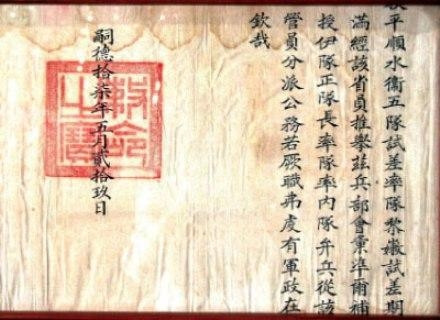 平順水衛五隊試差率隊黎嫩試差期
滿經該省員推擧茲兵部會彙準爾補
授伊隊正隊長率隊率內隊弁兵從該
管員分派公務若厥職弗虔有軍政在
欽哉
嗣德拾柒年五月貳拾玖日
敕命之寶